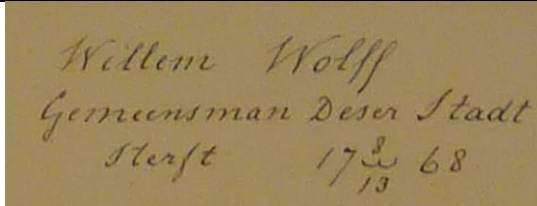 Willem Wolff
Gemeensman Deser Stadt
Sterft 17 8/13 68